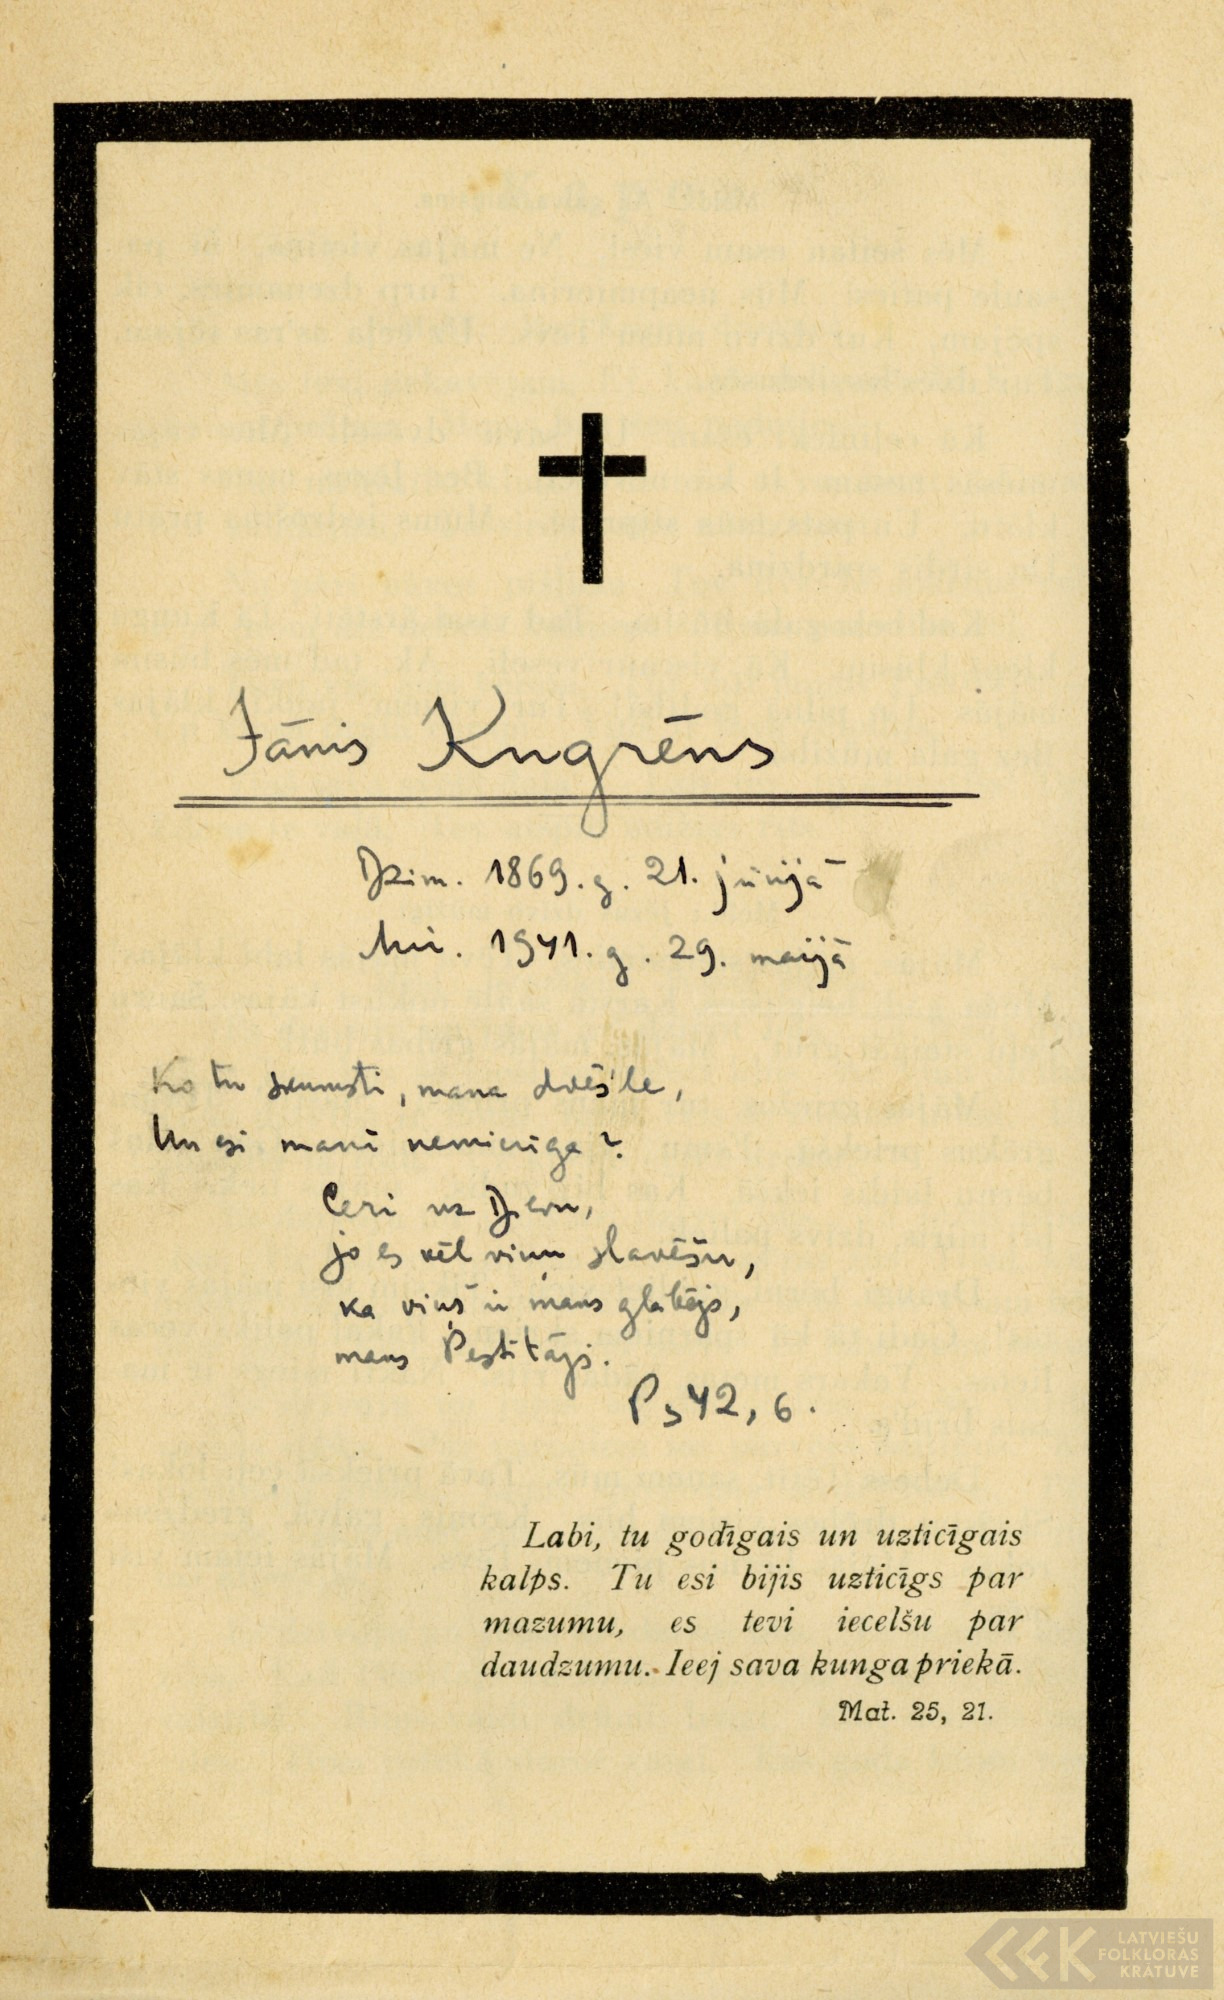 Jānis Kugrēns
Dzim. 1869. g. 21. jūnijā
Mir. 1941. g. 29. maijā
Ko tu skumsti, mana dvēs'le,
Un esi manī nemierīga?
Ceri uz Dievu,
jo es vēl viņu slavēšu,
ka viņš ir mans glābējs,
mans Pestītājs.
Ps 42, 6.
Labi, tu godīgais un uzticīgais
kalps. Tu esi bijis uzticīgs par
mazumu, es tevi iecelšu par
daudzumu. Ieej sava kunga priekā.
Mat. 25, 21.
LATVIEŠU
FOLKLORAS
KRĀTUVE